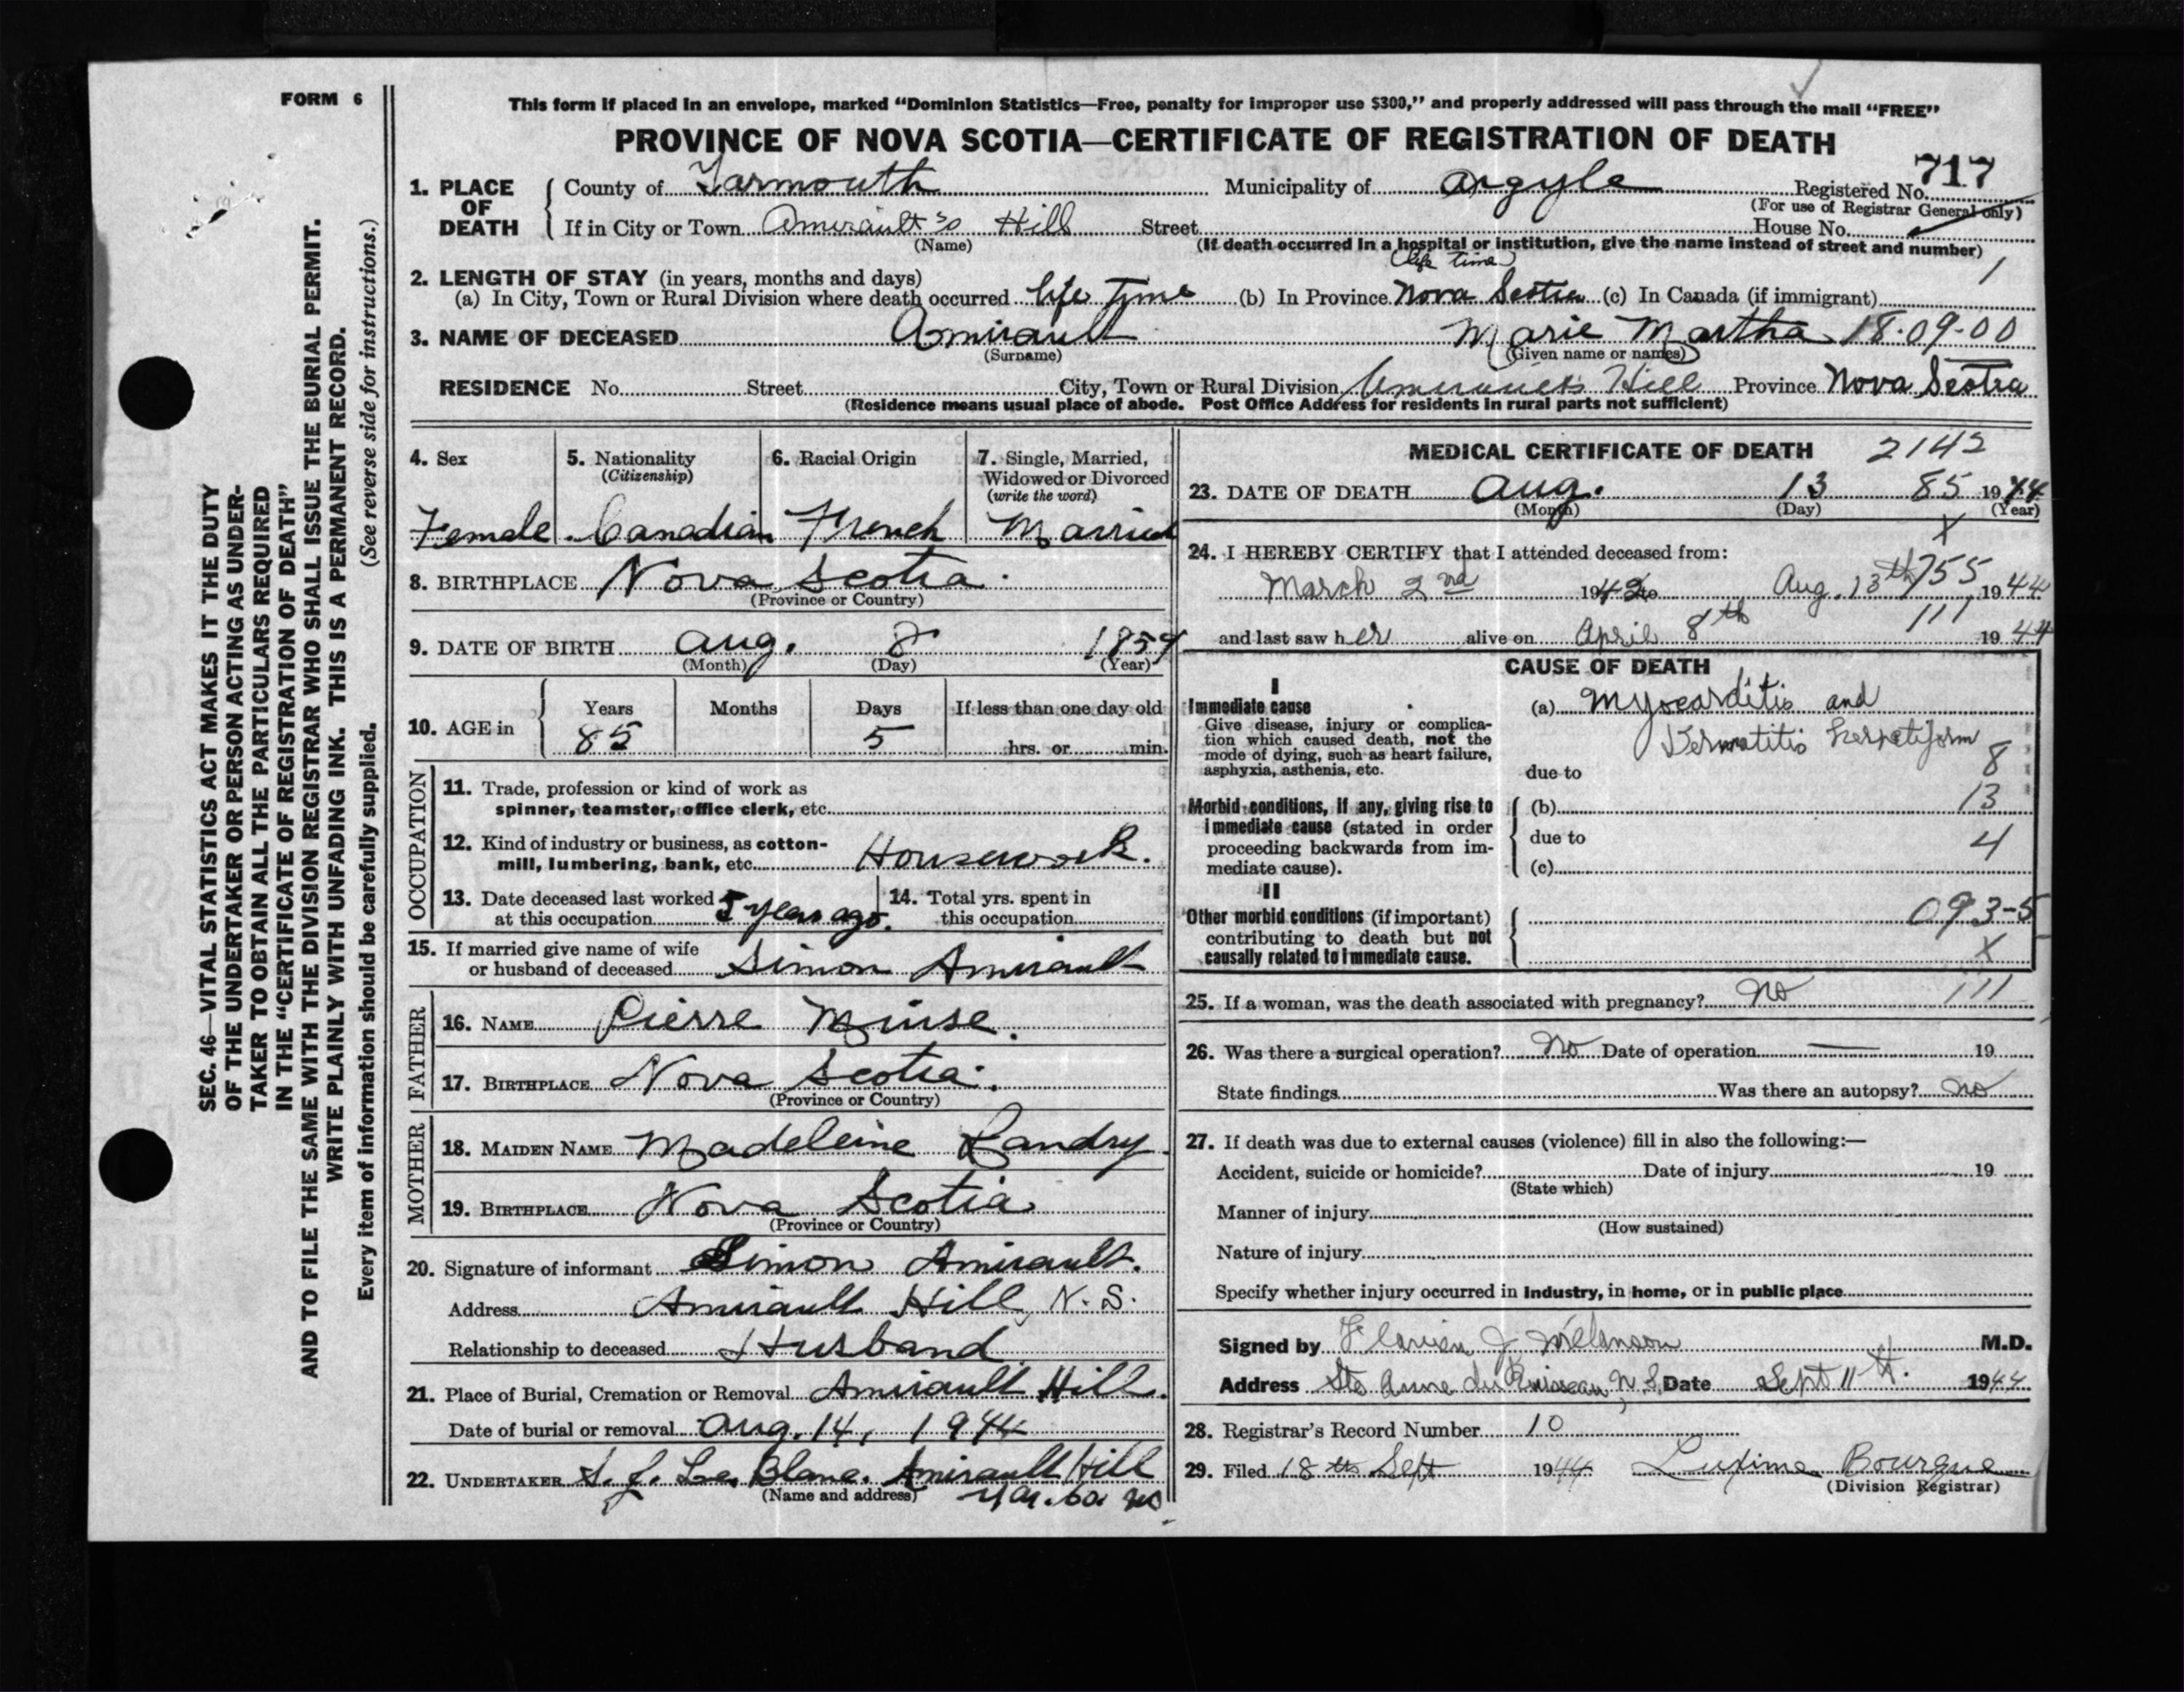 FORM 6
This form if placed in an envelope, marked "Dominion Statistics—Free, penalty for improper use $300," and properly addressed will pass through the mail "FREE"
PROVINCE OF NOVA SCOTIA—CERTIFICATE OF REGISTRATION OF DEATH
717
1. PLACE OF DEATH
County of Yarmouth Municipality of Argyle Registered No.
(For use of Registrar General only)
If in City or Town Amirault's Hill Street House No.
(Name) (If death occurred in a hospital or institution, give the name instead of street and number)
(life time)
2. LENGTH OF STAY (in years, months and days) 1
(a) In City, Town or Rural Division where death occurred life Time (b) In Province Nova Scotia (c) In Canada (if immigrant)
3. NAME OF DECEASED Amirault Marie Martha 18-09-00
(Surname) (Given name or names)
RESIDENCE No. Street City, Town or Rural Division Amirault's Hill Province Nova Scotia
(Residence means usual place of abode. Post Office Address for residents in rural parts not sufficient)
4. Sex
Female
5. Nationality
(Citizenship)
Canadian
6. Racial Origin
French
7. Single, Married,
Widowed or Divorced
(write the word)
Married
8. BIRTHPLACE Nova Scotia
(Province or Country)
9. DATE OF BIRTH Aug. 8 1859
(Month) (Day) (Year)
10. AGE in
Years Months Days If less than one day old
85 5 hrs. or min.
OCCUPATION
11. Trade, profession or kind of work as
spinner, teamster, office clerk, etc.
12. Kind of industry or business, as cotton-
mill, lumbering, bank, etc. Housework.
13. Date deceased last worked
at this occupation 5 years ago.
14. Total yrs. spent in
this occupation
15. If married give name of wife
or husband of deceased Simon Amirault
FATHER
16. NAME Pierre Miuse.
17. BIRTHPLACE Nova Scotia.
(Province or Country)
MOTHER
18. MAIDEN NAME Madeleine Landry
19. BIRTHPLACE Nova Scotia
(Province or Country)
20. Signature of informant Simon Amirault.
Address Amirault Hill, N.S.
Relationship to deceased Husband
21. Place of Burial, Cremation or Removal Amirault Hill.
Date of burial or removal Aug. 14, 1944
22. UNDERTAKER S. J. Le Blanc. Amirault Hill
(Name and address) Yar. Co. NS
MEDICAL CERTIFICATE OF DEATH 2142
23. DATE OF DEATH Aug. 13 85 1944
(Month) (Day) (Year)
X
24. I HEREBY CERTIFY that I attended deceased from:
March 2nd 1942 to Aug. 13th 755 1944
111
and last saw her alive on April 8th 1944
CAUSE OF DEATH
I
Immediate cause
Give disease, injury or complica-
tion which caused death, not the
mode of dying, such as heart failure,
asphyxia, asthenia, etc.
(a) Myocarditis and
Dermatitis herpetiform
8
due to
Morbid conditions, if any, giving rise to
immediate cause (stated in order
proceeding backwards from im-
mediate cause).
(b) 13
due to 4
(c)
II
Other morbid conditions (if important)
contributing to death but not
causally related to immediate cause.
093-5
X
25. If a woman, was the death associated with pregnancy? No 111
26. Was there a surgical operation? No Date of operation — 19
State findings Was there an autopsy? No
27. If death was due to external causes (violence) fill in also the following:—
Accident, suicide or homicide? Date of injury 19
(State which)
Manner of injury
(How sustained)
Nature of injury
Specify whether injury occurred in industry, in home, or in public place
Signed by Flavien J Melanson M.D.
Address Ste Anne du Ruisseau, N.S. Date Sept 11th. 1944
28. Registrar's Record Number 10
29. Filed 18th Sept 1944 Bourque
(Division Registrar)
SEC. 46—VITAL STATISTICS ACT MAKES IT THE DUTY
OF THE UNDERTAKER OR PERSON ACTING AS UNDER-
TAKER TO OBTAIN ALL THE PARTICULARS REQUIRED
IN THE "CERTIFICATE OF REGISTRATION OF DEATH"
AND TO FILE THE SAME WITH THE DIVISION REGISTRAR WHO SHALL ISSUE THE BURIAL PERMIT.
WRITE PLAINLY WITH UNFADING INK. THIS IS A PERMANENT RECORD.
Every item of information should be carefully supplied. (See reverse side for instructions.)